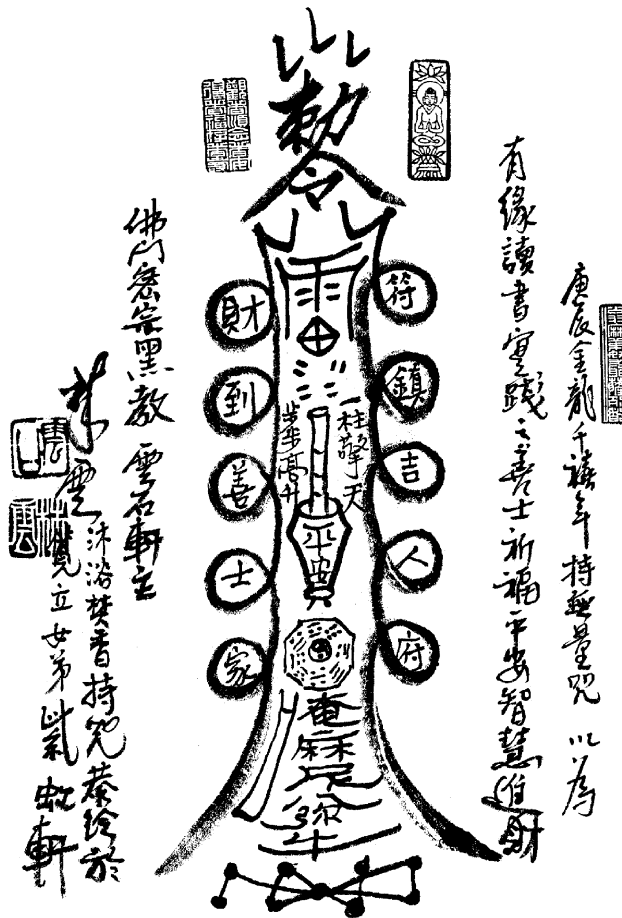 庚辰金龍千禧年持無量咒以為
有緣讀書實踐之善士祈福平安智慧進財
敕令
雨
符鎮吉人府
財到善士家
一柱擎天
步步高升
平安
唵嘛呢
佛門密宗黑教雲石軒主
林雲
沐浴焚香持咒恭繪於
立女弟紫虬軒